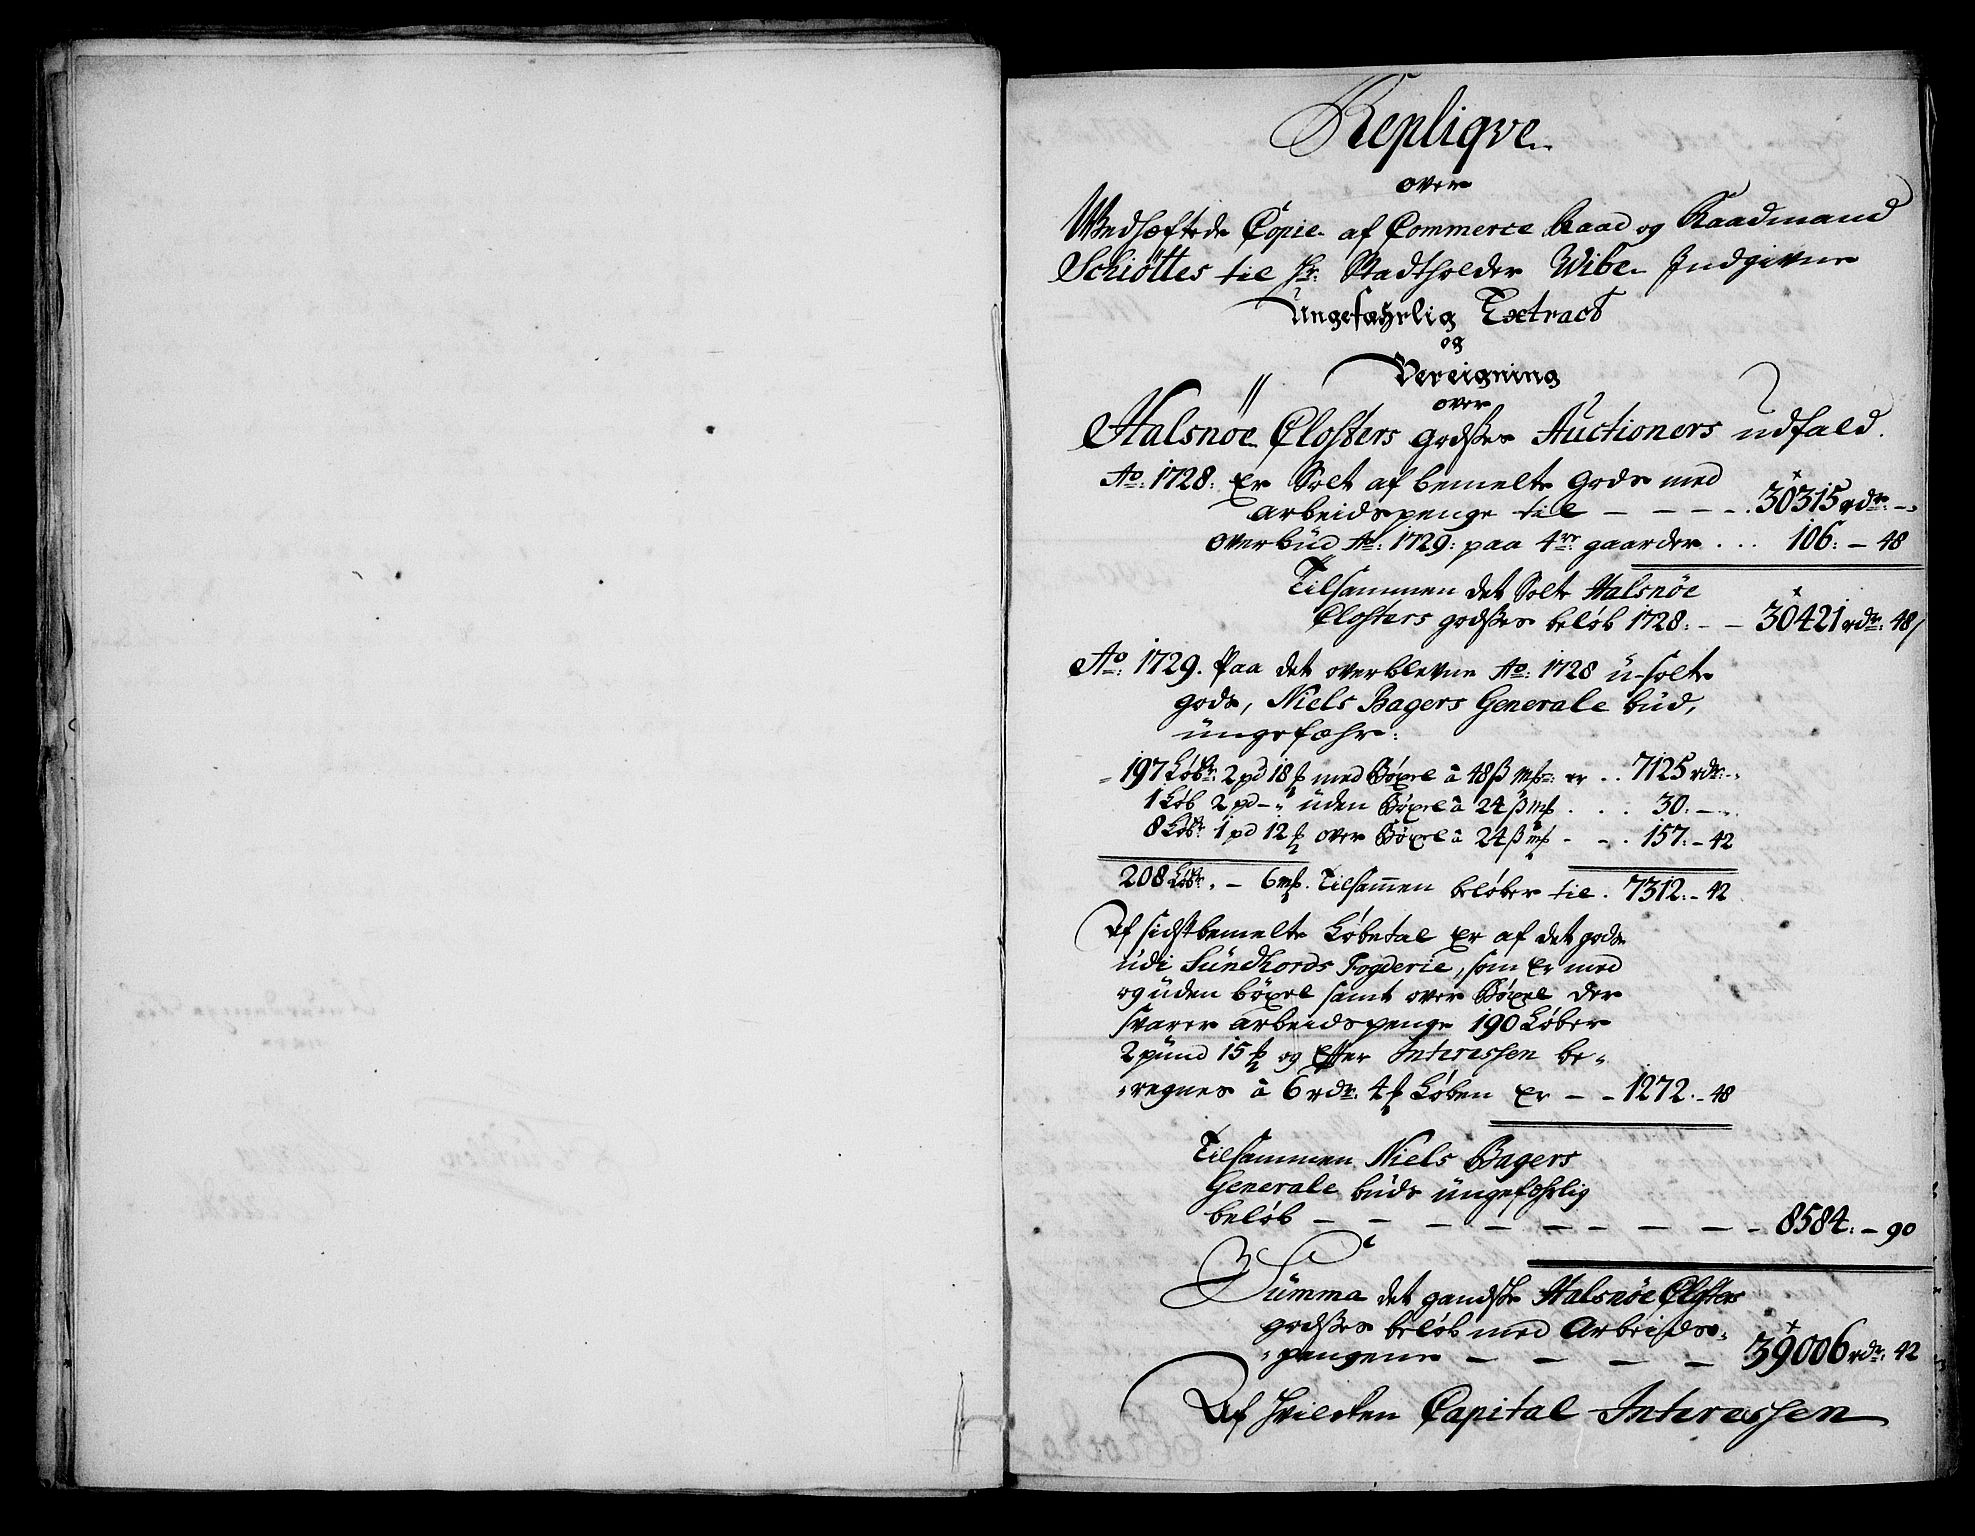 Repliqve
over
Wedhæftede Copie af Commerce Raad og Raadmand
Schiøttes til Hr: Stadtholder Wibe Indgivne
Ungefæhrlig Extract
og
Bereigning
over
Halsnøe Closters godses Auctioners udfald.
Ao: 1728: er Solt af bemelte gods med
arbeidspenge til — — — 30315 rdr: —
overbud Ao: 1729: paa 4re: gaarder . . . 106: — 48
Tilsammen det Solte Halsnøe
Closters godses beløb 1728: — — 30421 rdr: 48
Ao: 1729. Paa det overblevne Ao: 1728 u-solte
gods, Niels Bagers Generale bud,
ungefæhr:
197 Løbr: 2 pd 18 ℔ med Bøxel à 48 ß er . . 7125 rdr: —
1 Løb 2 pd — uden Bøxel à 24 ß . . . 30: —
8 Løbr 1 pd 12 ℔ over Bøxel à 24 ß — — . 157: — 42
208 Løbr. — 6 Tilsammen beløber til . 7312: — 42
Af sidstbemelte Løbetal er af det gods
udi Sundhords Fogderie, som er med
og uden bøxel samt over Bøxel der
svarer arbeidspenge 190 Løber
2 pund 15 ℔ og efter Interessen be-
regnes à 6 rdr: 4 ß Løben er — — 1272. — 48
Tilsammen Niels Bagers
Generale buds ungefæhrlig
beløb — — — — — — — — 8584: — 90
Summa det gandske Halsnøe Closters
godses beløb med Arbeids-
pengene — — — — 39006 rdr: 42
Af hvilcken Capital Interessen